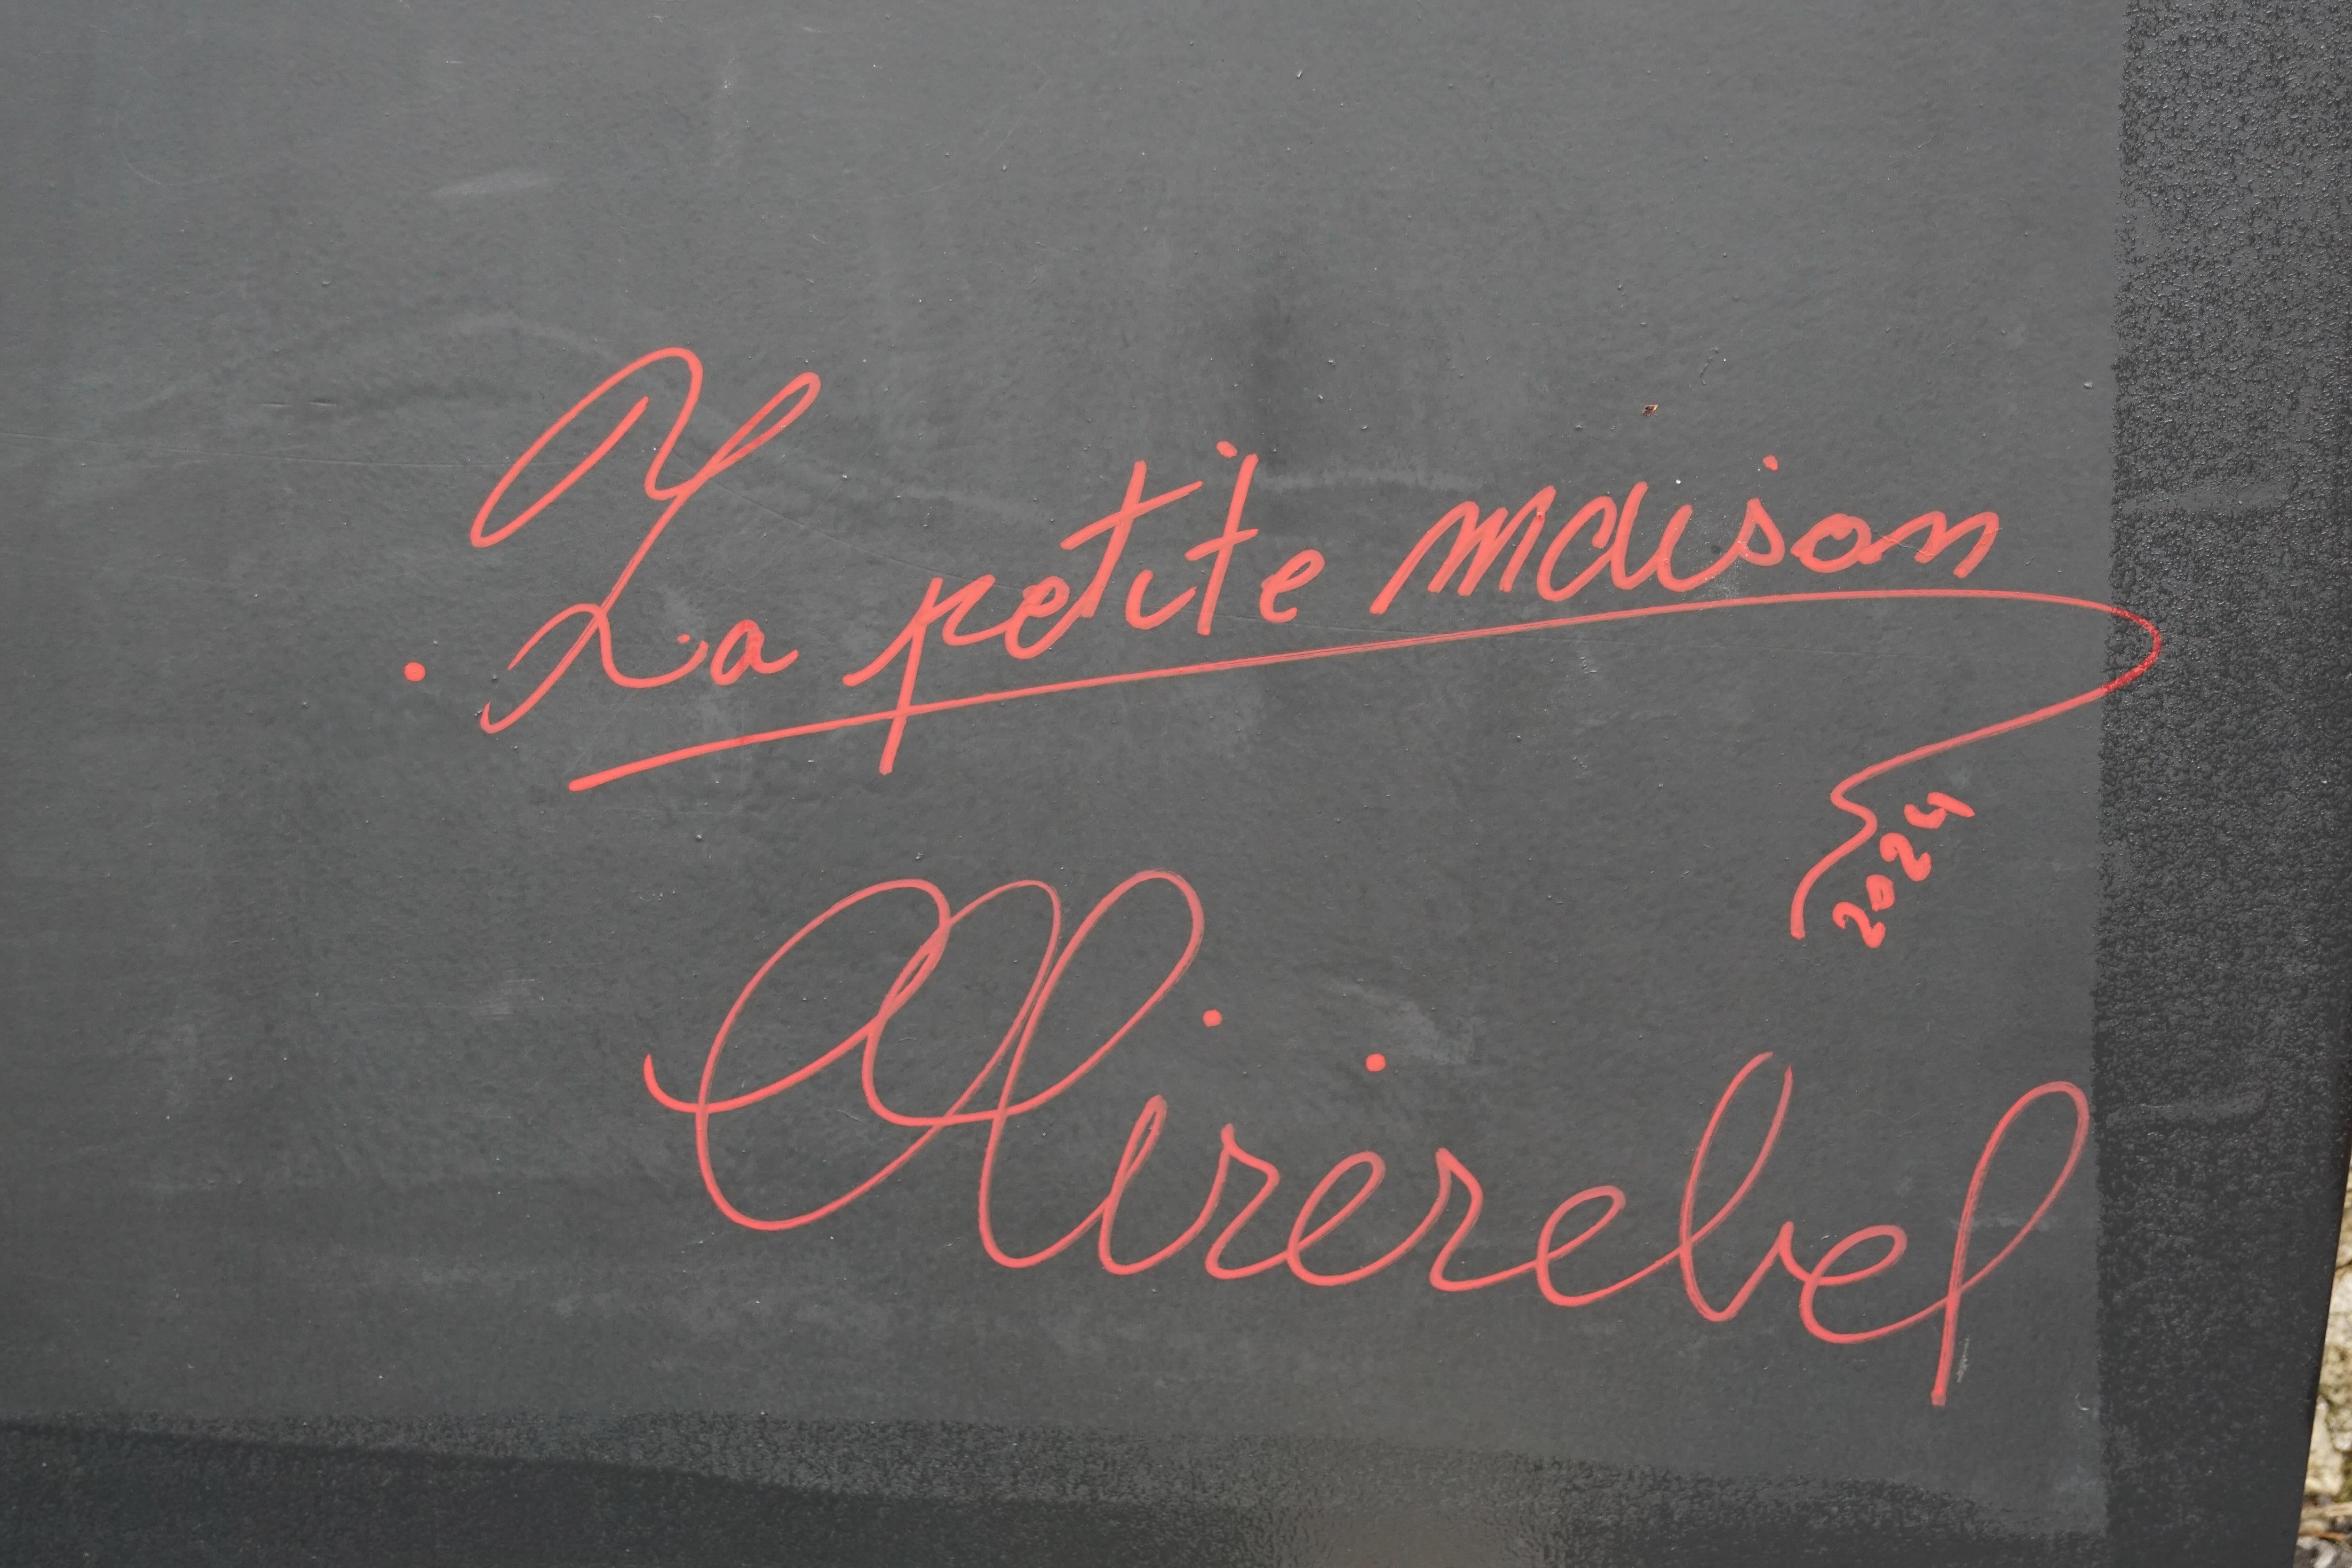 La petite maison
2024